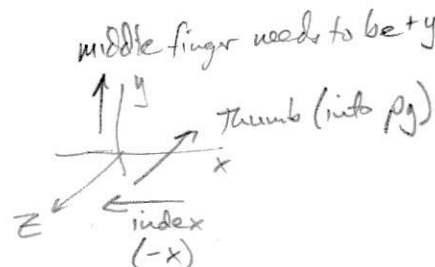 middle finger needs to be +y
y
Thumb (into pg)
x
Z
index
(-x)